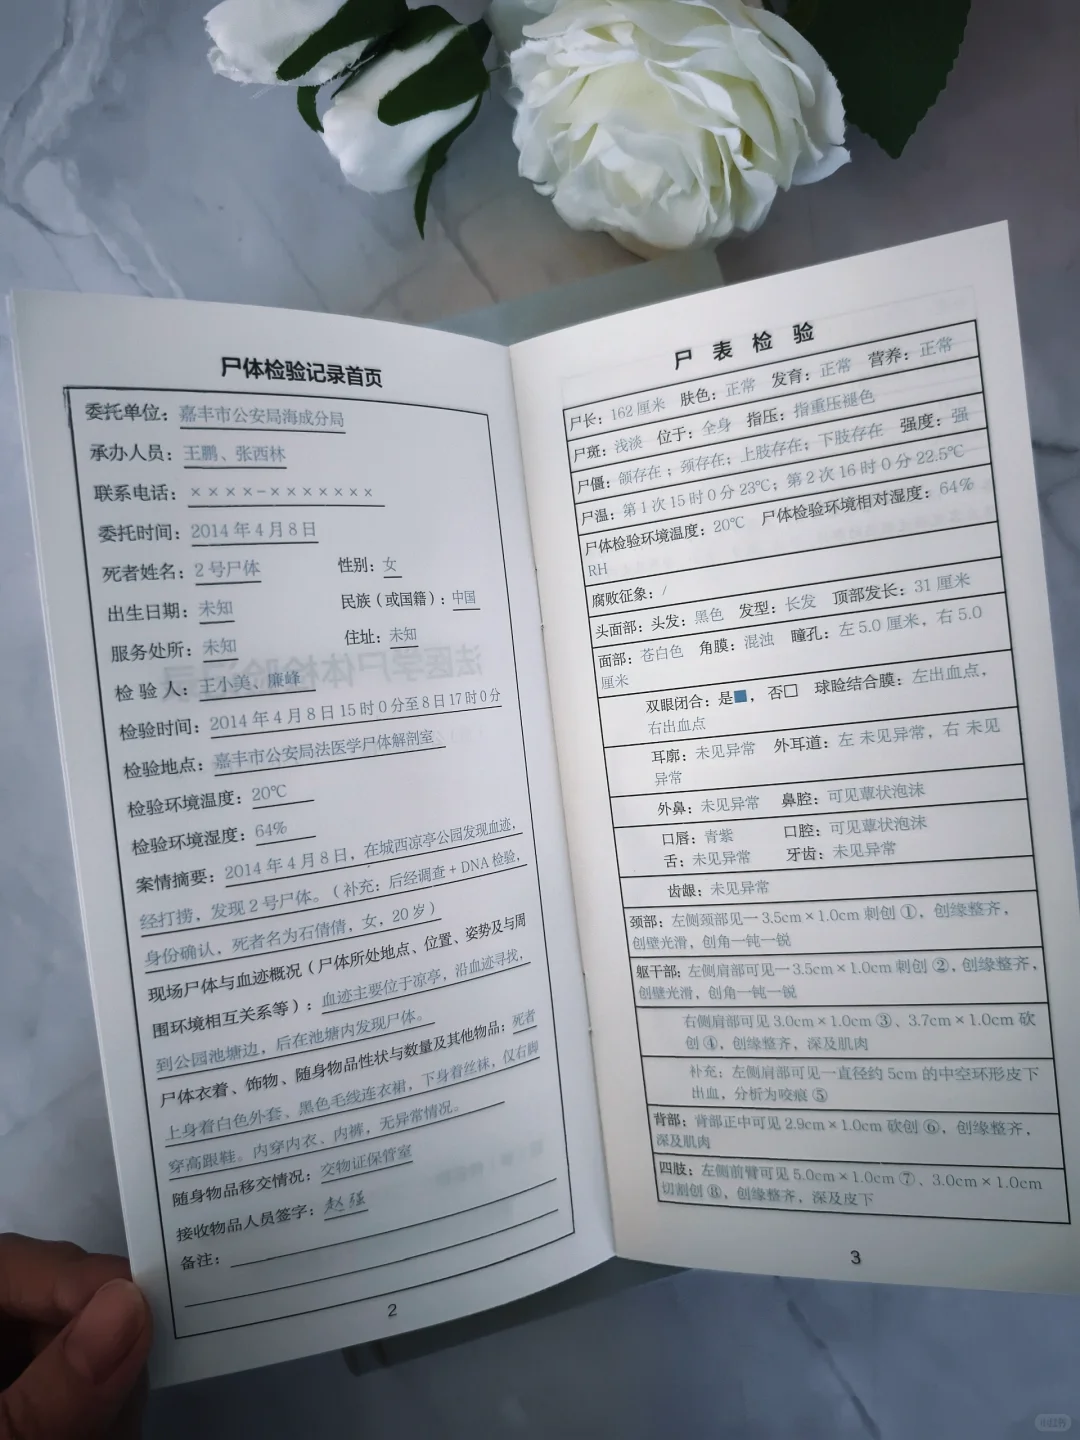 尸体检验记录首页
委托单位：嘉丰市公安局海成分局
承办人员：王鹏、张西林
联系电话：××××-×××××××
委托时间：2014 年 4 月 8 日
死者姓名：2 号尸体 性别：女
出生日期：未知 民族（或国籍）：中国
服务处所：未知 住址：未知
检 验 人：王小美、廉峰
检验时间：2014 年 4 月 8 日 15 时 0 分至 8 日 17 时 0 分
检验地点：嘉丰市公安局法医学尸体解剖室
检验环境温度：20℃
检验环境湿度：64%
案情摘要：2014 年 4 月 8 日，在城西凉亭公园发现血迹，
经打捞，发现 2 号尸体。（补充：后经调查 + DNA 检验，
身份确认，死者名为石倩倩，女，20 岁）
现场尸体与血迹概况（尸体所处地点、位置、姿势及与周
围环境相互关系等）：血迹主要位于凉亭，沿血迹寻找，
到公园池塘边，后在池塘内发现尸体。
尸体衣着、饰物、随身物品性状与数量及其他物品：死者
上身着白色外套、黑色毛线连衣裙，下身着丝袜，仅右脚
穿高跟鞋。内穿内衣、内裤，无异常情况。
随身物品移交情况：交物证保管室
接收物品人员签字：赵强
备注：
2
尸 表 检 验
尸长：162 厘米 肤色：正常 发育：正常 营养：正常
尸斑：浅淡 位于：全身 指压：指重压褪色
尸僵：颌存在；颈存在；上肢存在；下肢存在 强度：强
尸温：第 1 次 15 时 0 分 23℃；第 2 次 16 时 0 分 22.5℃
尸体检验环境温度：20℃ 尸体检验环境相对湿度：64%
RH
腐败征象：/
头面部：头发：黑色 发型：长发 顶部发长：31 厘米
面部：苍白色 角膜：混浊 瞳孔：左 5.0 厘米，右 5.0
厘米
双眼闭合：是■，否□ 球睑结合膜：左出血点，
右出血点
耳廓：未见异常 外耳道：左 未见异常，右 未见
异常
外鼻：未见异常 鼻腔：可见蕈状泡沫
口唇：青紫 口腔：可见蕈状泡沫
舌：未见异常 牙齿：未见异常
齿龈：未见异常
颈部：左侧颈部见一 3.5cm × 1.0cm 刺创 ①，创缘整齐，
创壁光滑，创角一钝一锐
躯干部：左侧肩部可见一 3.5cm × 1.0cm 刺创 ②，创缘整齐，
创壁光滑，创角一钝一锐
右侧肩部可见 3.0cm × 1.0cm ③、3.7cm × 1.0cm 砍
创 ④，创缘整齐，深及肌肉
补充：左侧肩部可见一直径约 5cm 的中空环形皮下
出血，分析为咬痕 ⑤
背部：背部正中可见 2.9cm × 1.0cm 砍创 ⑥，创缘整齐，
深及肌肉
四肢：左侧前臂可见 5.0cm × 1.0cm ⑦、3.0cm × 1.0cm
切割创 ⑧，创缘整齐，深及皮下
3